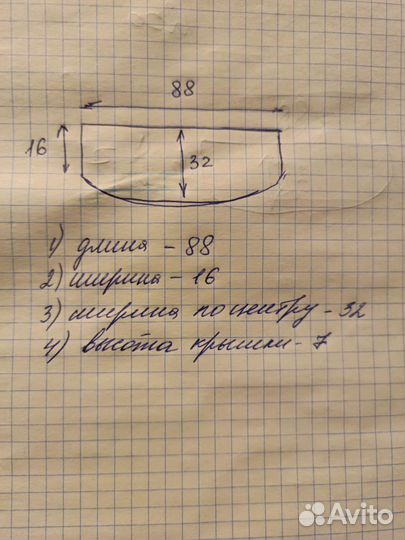 88
16
32
1) длина - 88
2) ширина - 16
3) ширина по центру - 32
4) высота крышки - 7
Avito